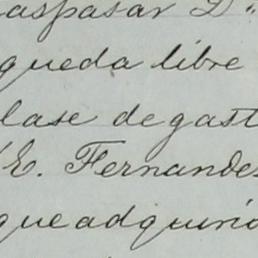 aspasar D.ⁿ
queda libre
lase de gast
E. Fernandez
que adquirió